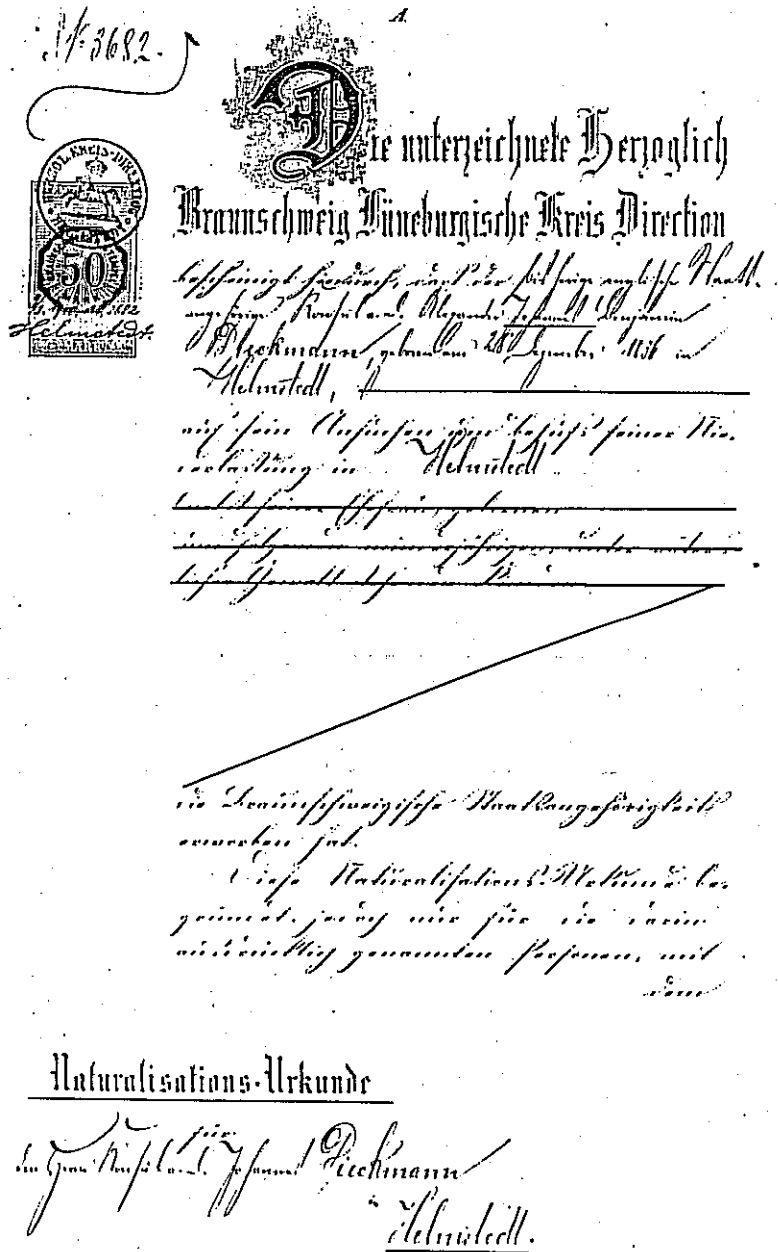 A.
№ 3682.
Die unterzeichnete Herzoglich
Braunschweig Lüneburgische Kreis Direction
HERZOGL. KREIS-DIREKTION
HELMSTEDT
50
Helmstedt.
bescheinigt hierdurch, daß der bisherige englische Staats-
angehörige Konsul a. D. Alexander Johannes Benjamin
Dieckmann, geboren am 28 Dezember in
Helmstedt,
auf sein Ansuchen und behufs seiner Nie-
derlassung in Helmstedt
die Braunschweigische Staatsangehörigkeit
erworben hat.
Diese Naturalisations-Urkunde be-
gründet jedoch nur für die darin
ausdrücklich genannten Personen, mit
dem
Naturalisations-Urkunde
für
den Herrn Konsul a. D. Johannes Dieckmann
in
Helmstedt.